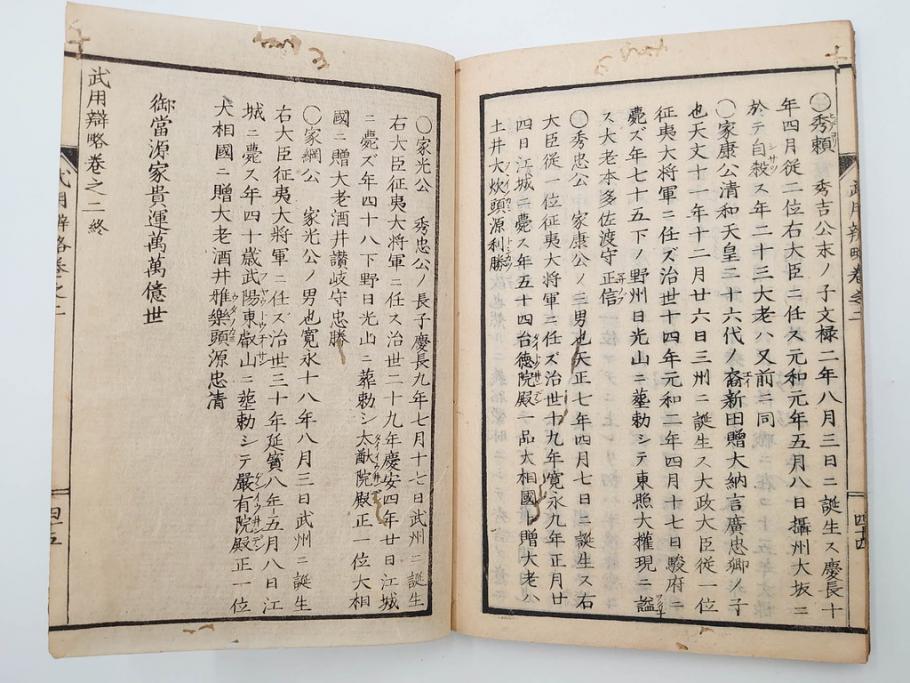 ○秀賴 秀吉公末ノ子文祿二年八月三日ニ誕生ス慶長十
年四月従二位右大臣ニ任ス元和元年五月八日攝州大坂ニ
於テ自殺ス年二十三大老ハ又前ニ同
○家康公清和天皇二十六代ノ裔新田贈大納言廣忠卿ノ子
也天文十一年十二月廿六日三州ニ誕生ス大政大臣従一位
征夷大将軍ニ任ズ治世十四年元和二年四月十七日駿府ニ
薨ズ年七十五下ノ野州日光山ニ葬勅シテ東照大權現ニ謚
ス大老本多佐渡守正信
○秀忠公 家康公ノ三男也天正七年四月七日ニ誕生ス右
大臣従一位征夷大将軍ニ任ズ治世十九年寛永九年正月廿
四日江城ニ薨ス年五十四台徳院殿一品大相國ト贈大老ハ
土井大炊頭源利勝
武用辨略巻之二
四十四
○家光公 秀忠公ノ長子慶長九年七月十七日武州ニ誕生
右大臣征夷大将軍ニ任ス治世二十九年慶安四年廿日江城
ニ薨ズ年四十八下野日光山ニ葬勅シ大猷院殿正一位大相
國ニ贈大老酒井讃岐守忠勝
○家綱公 家光公ノ男也寛永十八年八月三日武州ニ誕生
右大臣征夷大将軍ニ任ス治世三十年延寳八年五月八日江
城ニ薨ス年四十歳武陽東叡山ニ葬勅シテ嚴有院殿正一位
大相國ニ贈大老酒井雅樂頭源忠清
御當源家貴運萬萬億世
武用辯略巻之二終
四十五